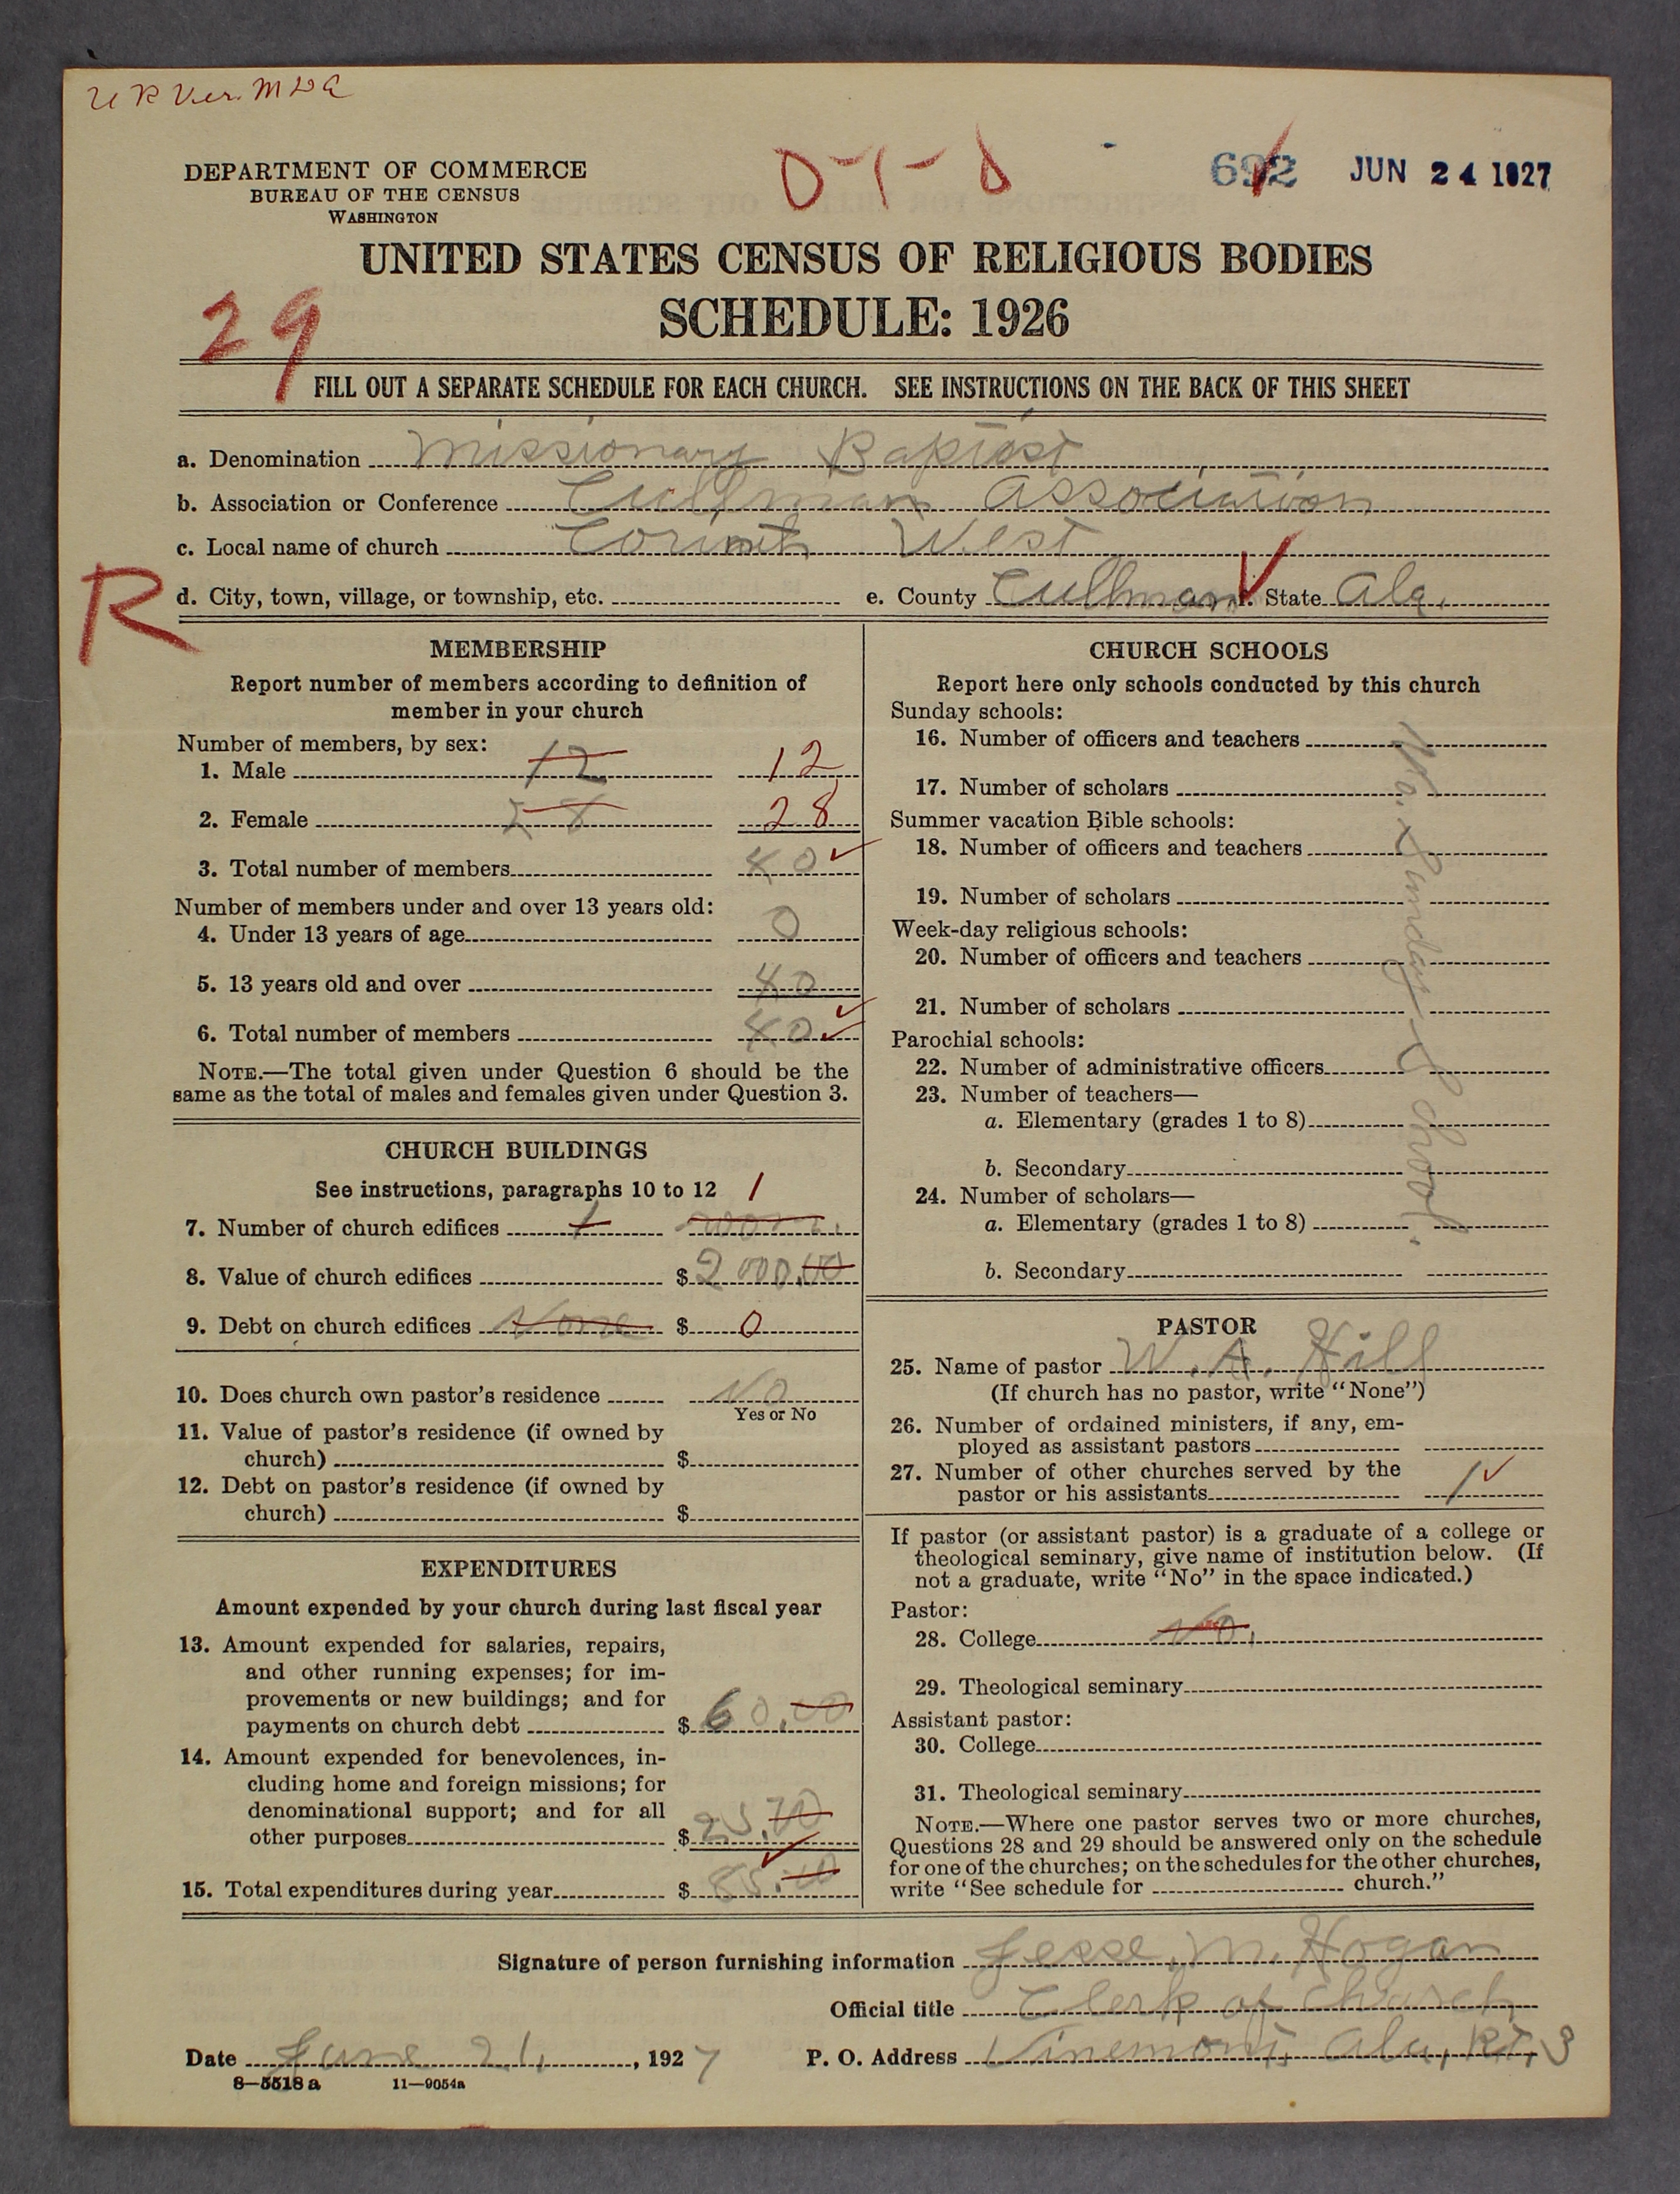 U R Ver. M D C
DEPARTMENT OF COMMERCE
BUREAU OF THE CENSUS
WASHINGTON
0-1-0
692 JUN 24 1927
UNITED STATES CENSUS OF RELIGIOUS BODIES
SCHEDULE: 1926
29
FILL OUT A SEPARATE SCHEDULE FOR EACH CHURCH. SEE INSTRUCTIONS ON THE BACK OF THIS SHEET
a. Denomination Missionary Baptist
b. Association or Conference Cullman Association
c. Local name of church Corinth West
R
d. City, town, village, or township, etc. e. County Cullman f. State Ala.
MEMBERSHIP
Report number of members according to definition of
member in your church
Number of members, by sex:
1. Male 12 12
2. Female 28 28
3. Total number of members 40
Number of members under and over 13 years old:
4. Under 13 years of age 0
5. 13 years old and over 40
6. Total number of members 40
NOTE.—The total given under Question 6 should be the
same as the total of males and females given under Question 3.
CHURCH BUILDINGS
See instructions, paragraphs 10 to 12 1
7. Number of church edifices 1
8. Value of church edifices $ 2000.00
9. Debt on church edifices None $ 0
10. Does church own pastor's residence No
Yes or No
11. Value of pastor's residence (if owned by
church) $
12. Debt on pastor's residence (if owned by
church) $
EXPENDITURES
Amount expended by your church during last fiscal year
13. Amount expended for salaries, repairs,
and other running expenses; for im-
provements or new buildings; and for
payments on church debt $ 60.00
14. Amount expended for benevolences, in-
cluding home and foreign missions; for
denominational support; and for all
other purposes $ 25.70
15. Total expenditures during year $ 85.70
CHURCH SCHOOLS
Report here only schools conducted by this church
Sunday schools:
16. Number of officers and teachers
17. Number of scholars
Summer vacation Bible schools:
18. Number of officers and teachers
19. Number of scholars
Week-day religious schools:
20. Number of officers and teachers
21. Number of scholars
Parochial schools:
22. Number of administrative officers
23. Number of teachers—
a. Elementary (grades 1 to 8)
b. Secondary
24. Number of scholars—
a. Elementary (grades 1 to 8)
b. Secondary
No. Sunday School.
PASTOR
25. Name of pastor W. A. Hill
(If church has no pastor, write "None")
26. Number of ordained ministers, if any, em-
ployed as assistant pastors
27. Number of other churches served by the
pastor or his assistants 1
If pastor (or assistant pastor) is a graduate of a college or
theological seminary, give name of institution below. (If
not a graduate, write "No" in the space indicated.)
Pastor:
28. College No.
29. Theological seminary
Assistant pastor:
30. College
31. Theological seminary
NOTE.—Where one pastor serves two or more churches,
Questions 28 and 29 should be answered only on the schedule
for one of the churches; on the schedules for the other churches,
write "See schedule for church."
Signature of person furnishing information Jesse. M. Hogan
Official title Clerk of Church
Date June 21, 1927 P. O. Address Vinemont, Ala, Rt, 3
8—5518 a 11—9054a